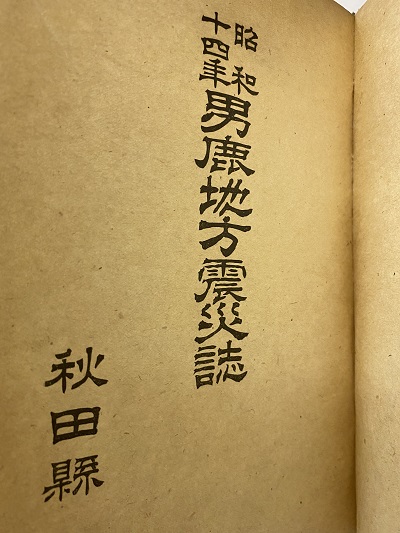 昭和十四年男鹿地方震災誌
秋田縣